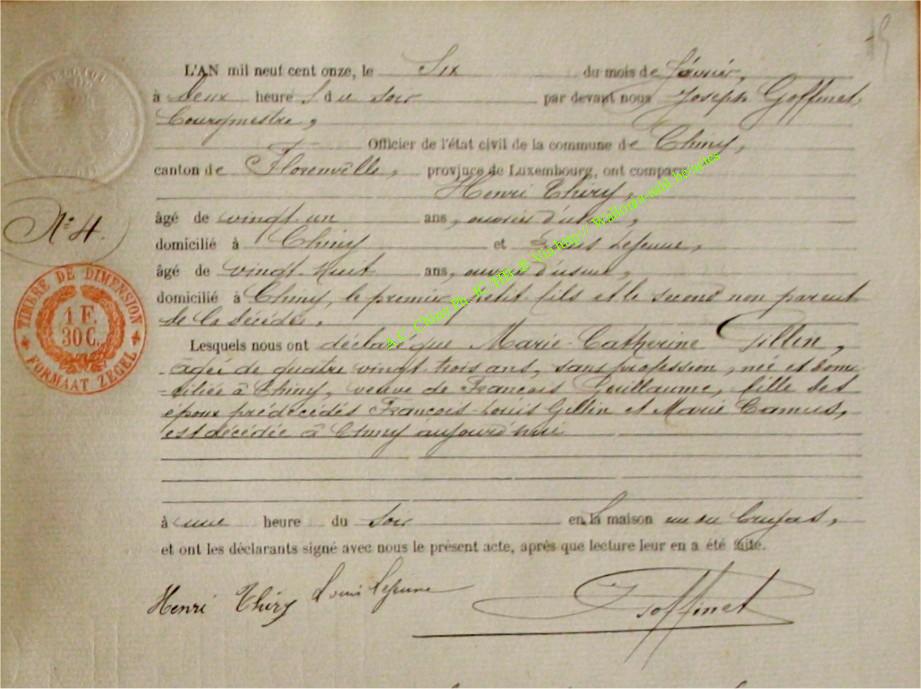 L'AN mil neuf cent onze, le Six du mois de février,
à deux heures du soir par devant nous Joseph Goffinet,
bourgmestre,
Officier de l'état civil de la commune de Chiny,
canton de Florenville, province de Luxembourg, ont comparu
Henri Thiry,
N° 4.
âgé de vingt-un ans, ouvrier d'usine,
domicilié à Chiny et Louis Lejeune,
âgé de vingt-huit ans, ouvrier d'usine,
domicilié à Chiny, le premier petit-fils et le second non parent
de la décédée.
TIMBRE DE DIMENSION
1 F.
30 C.
FORMAAT ZEGEL
Lesquels nous ont déclaré que Marie-Catherine Gillin,
âgée de quatre vingt trois ans, sans profession, née et domi-
-ciliée à Chiny, veuve de François Guillaume, fille des
époux prédécédés François-Louis Gillin et Marie Camus,
est décédée à Chiny aujourd'hui
à une heure du soir en la maison rue du
et ont les déclarants signé avec nous le présent acte, après que lecture leur en a été faite.
Henri Thiry Louis Lejeune
J Goffinet